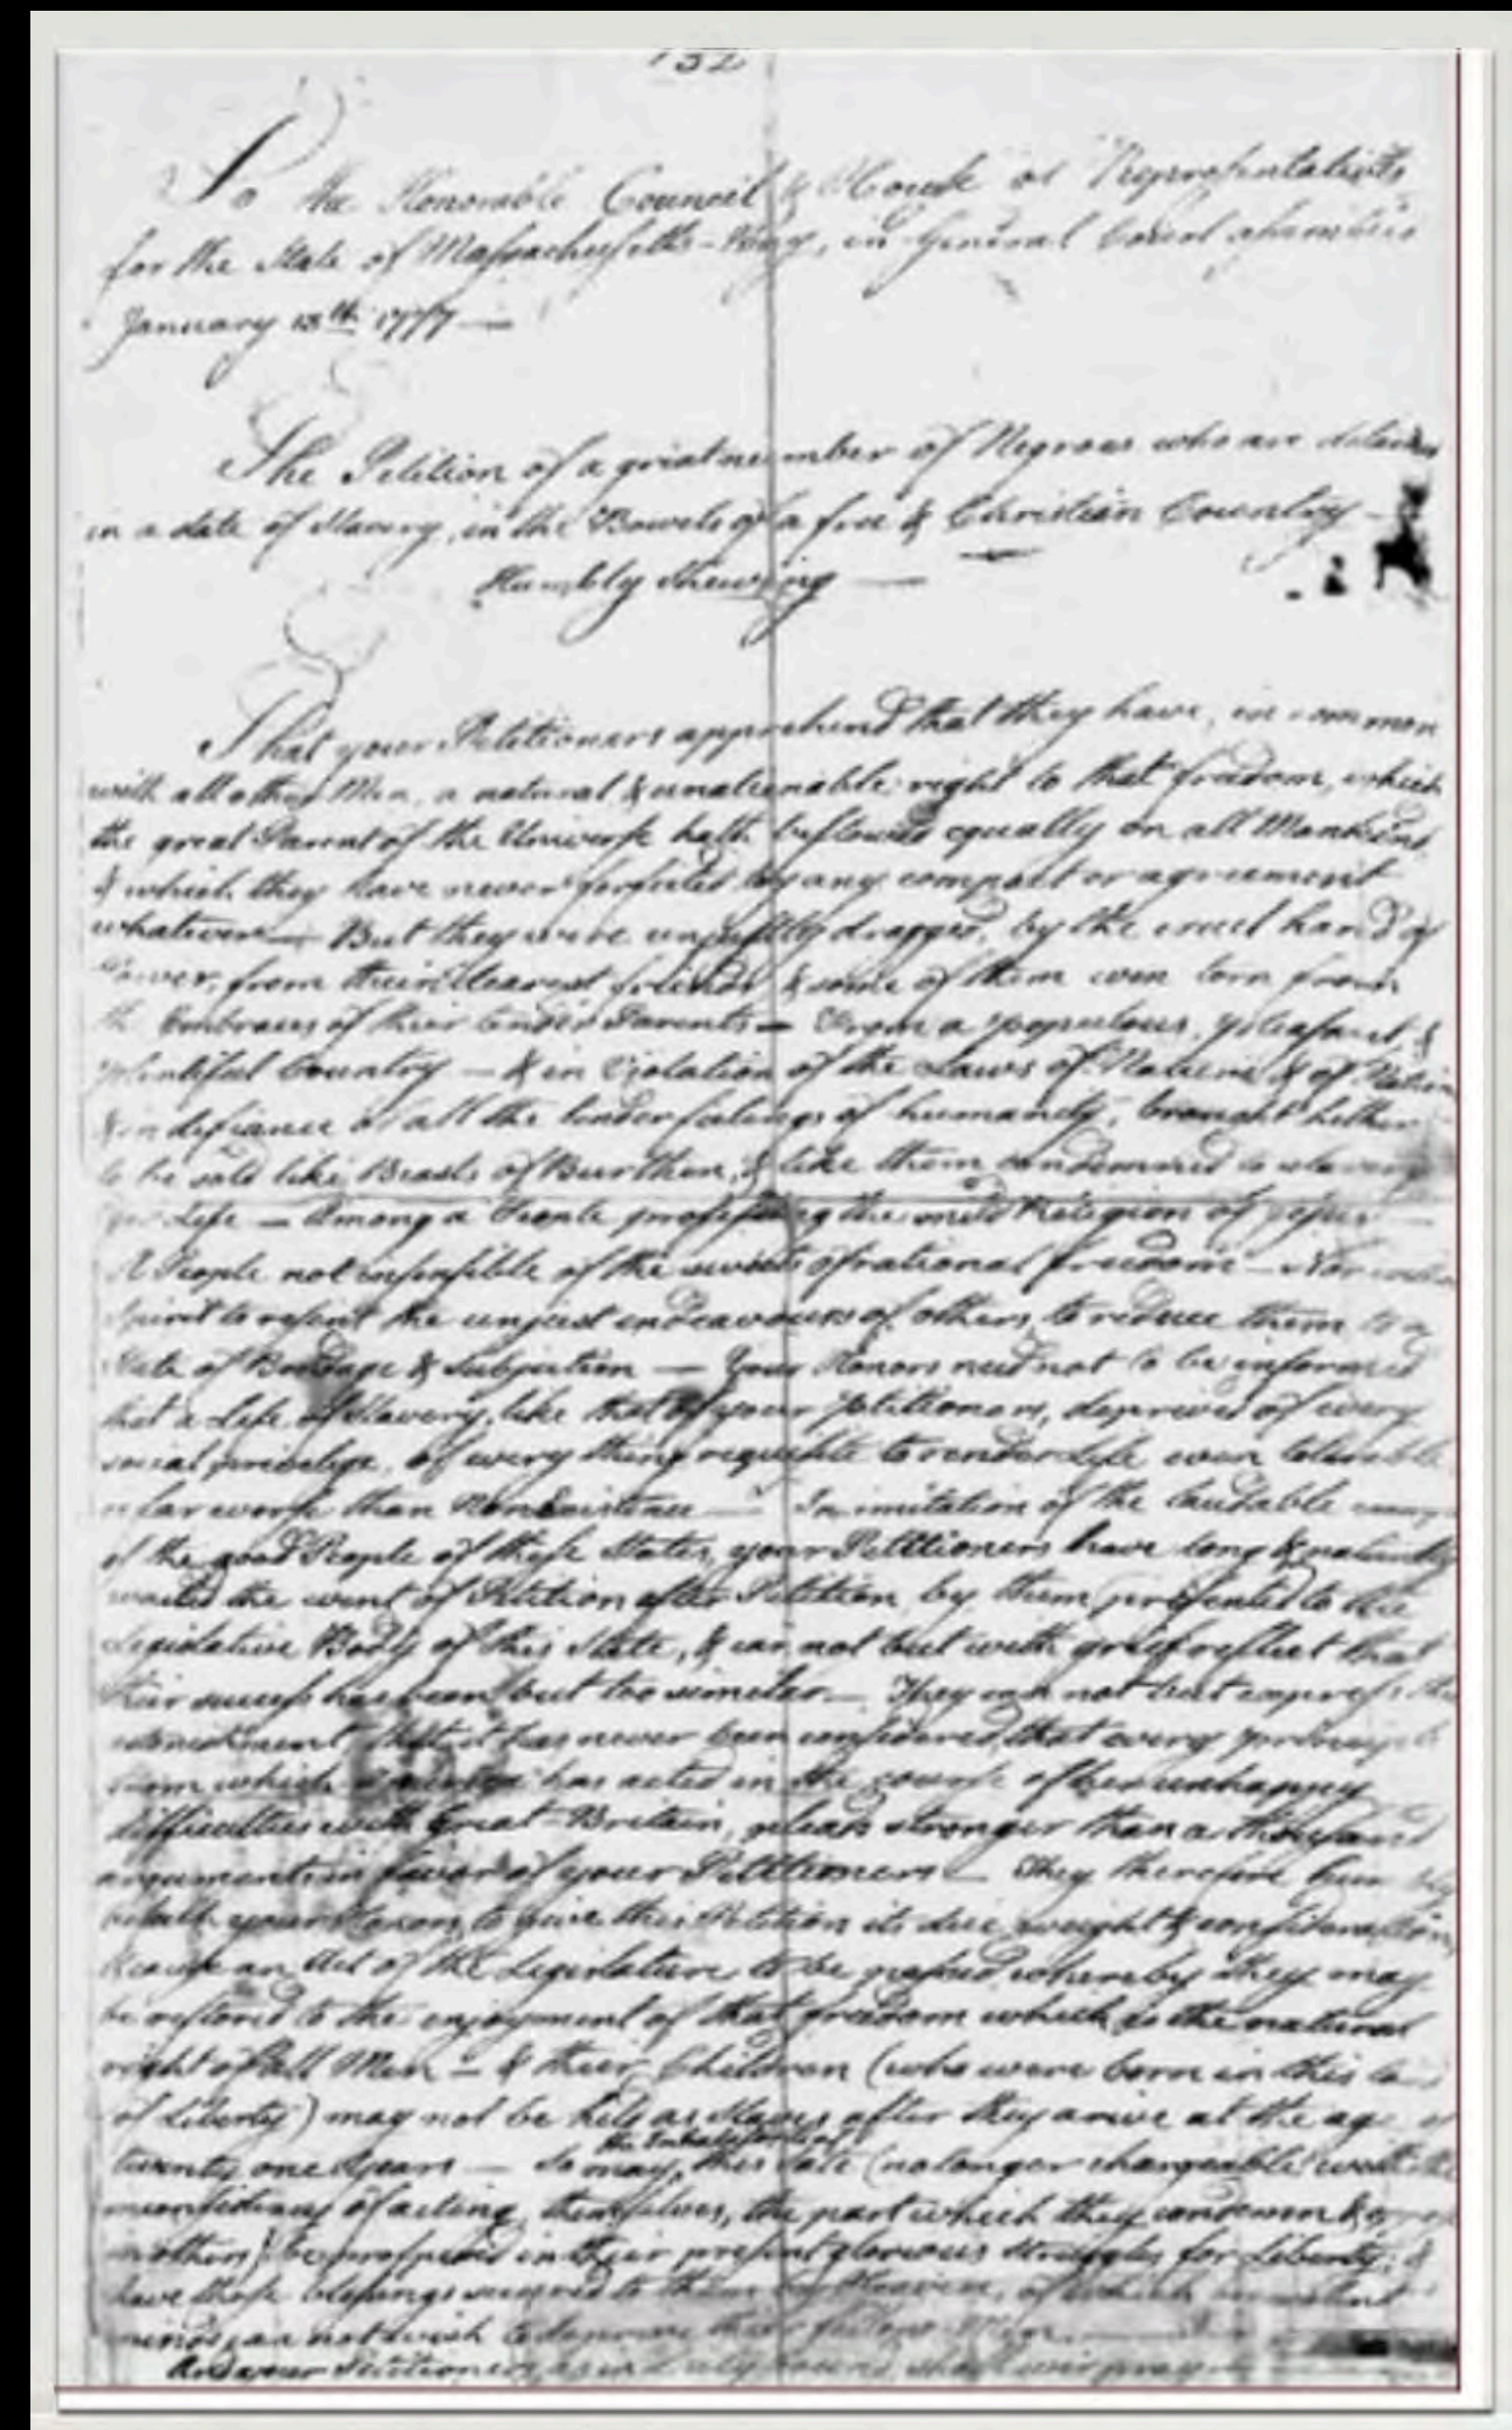 132
To the Honorable Council & House of Representatives
for the State of Massachusetts-Bay, in General Court assembled
January 13th 1777 —
The Petition of a great number of Negroes who are detained
in a state of Slavery, in the Bowels of a free & Christian Country —
Humbly Shewing —
That your Petitioners apprehend that they have, in common
with all other Men, a natural & unalienable right to that freedom, which
the great Parent of the Universe hath bestowed equally on all Mankind
& which they have never forfeited by any compact or agreement
whatever — But they were unjustly dragged, by the cruel hand of
Power, from their dearest friends & some of them even torn from
the Embraces of their tender Parents — From a populous, pleasant, &
plentiful Country — & in Violation of the Laws of Nature & of Nation
& in defiance of all the tender feelings of humanity, brought hither
to be sold like Beasts of Burthen, & like them condemned to slavery
for Life — Among a People professing the mild Religion of Jesus —
A People not insensible of the sweets of rational freedom — Nor without
spirit to resent the unjust endeavours of others to reduce them to a
State of Bondage & Subjection — Your Honors need not to be informed
that a Life of Slavery, like that of your petitioners, deprived of every
social privelege, of every thing requisite to render Life even tolerable
is far worse than Non-Existence — In imitation of the laudable
of the good People of these States, your Petitioners have long & patiently
waited the event of Petition after Petition by them presented to the
Legislative Body of this State, & can not but with grief reflect that
their success has been but too similar — They can not but express their
astonishment, that it has never been considered, that every principle
from which America has acted in the course of her unhappy
difficulties with Great-Britain, pleads stronger than a thousand
arguments in favor of your Petitioners — They therefore humbly
beseech your Honors, to give this Petition its due weight & consideration,
& cause an Act of the Legislature to be passed, whereby they may
be restored to the enjoyment of that freedom which is the natural
right of all Men — & their Children (who were born in this land
of Liberty) may not be held as Slaves after they arive at the age of
twenty one years — So may the Inhabitants of this State (no longer chargeable with the
inconsistency of acting, themselves, the part which they condemn & oppose
in others) be prospered in their present glorious struggles for Liberty; &
have those blessings secured to them by Heaven, of which benevolent
minds can not wish to deprive their fellow Men.
And your Petitioners, as in duty bound shall ever pray